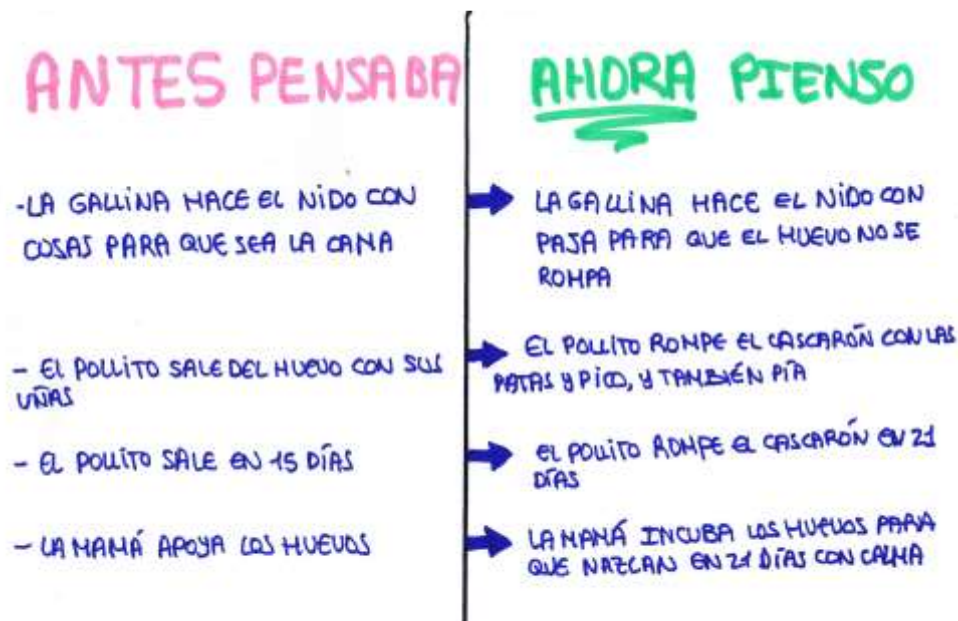 ANTES PENSABA
-LA GALLINA HACE EL NIDO CON
COSAS PARA QUE SEA LA CAMA
- EL POLLITO SALE DEL HUEVO CON SUS
UÑAS
- EL POLLITO SALE EN 15 DÍAS
- LA MAMÁ APOYA LOS HUEVOS
AHORA PIENSO
LA GALLINA HACE EL NIDO CON
PAJA PARA QUE EL HUEVO NO SE
ROMPA
EL POLLITO ROMPE EL CASCARÓN CON LAS
PATAS Y PICO, Y TAMBIÉN PÍA
EL POLLITO ROMPE EL CASCARÓN EN 21
DÍAS
LA MAMÁ INCUBA LOS HUEVOS PARA
QUE NAZCAN EN 21 DÍAS CON CALMA